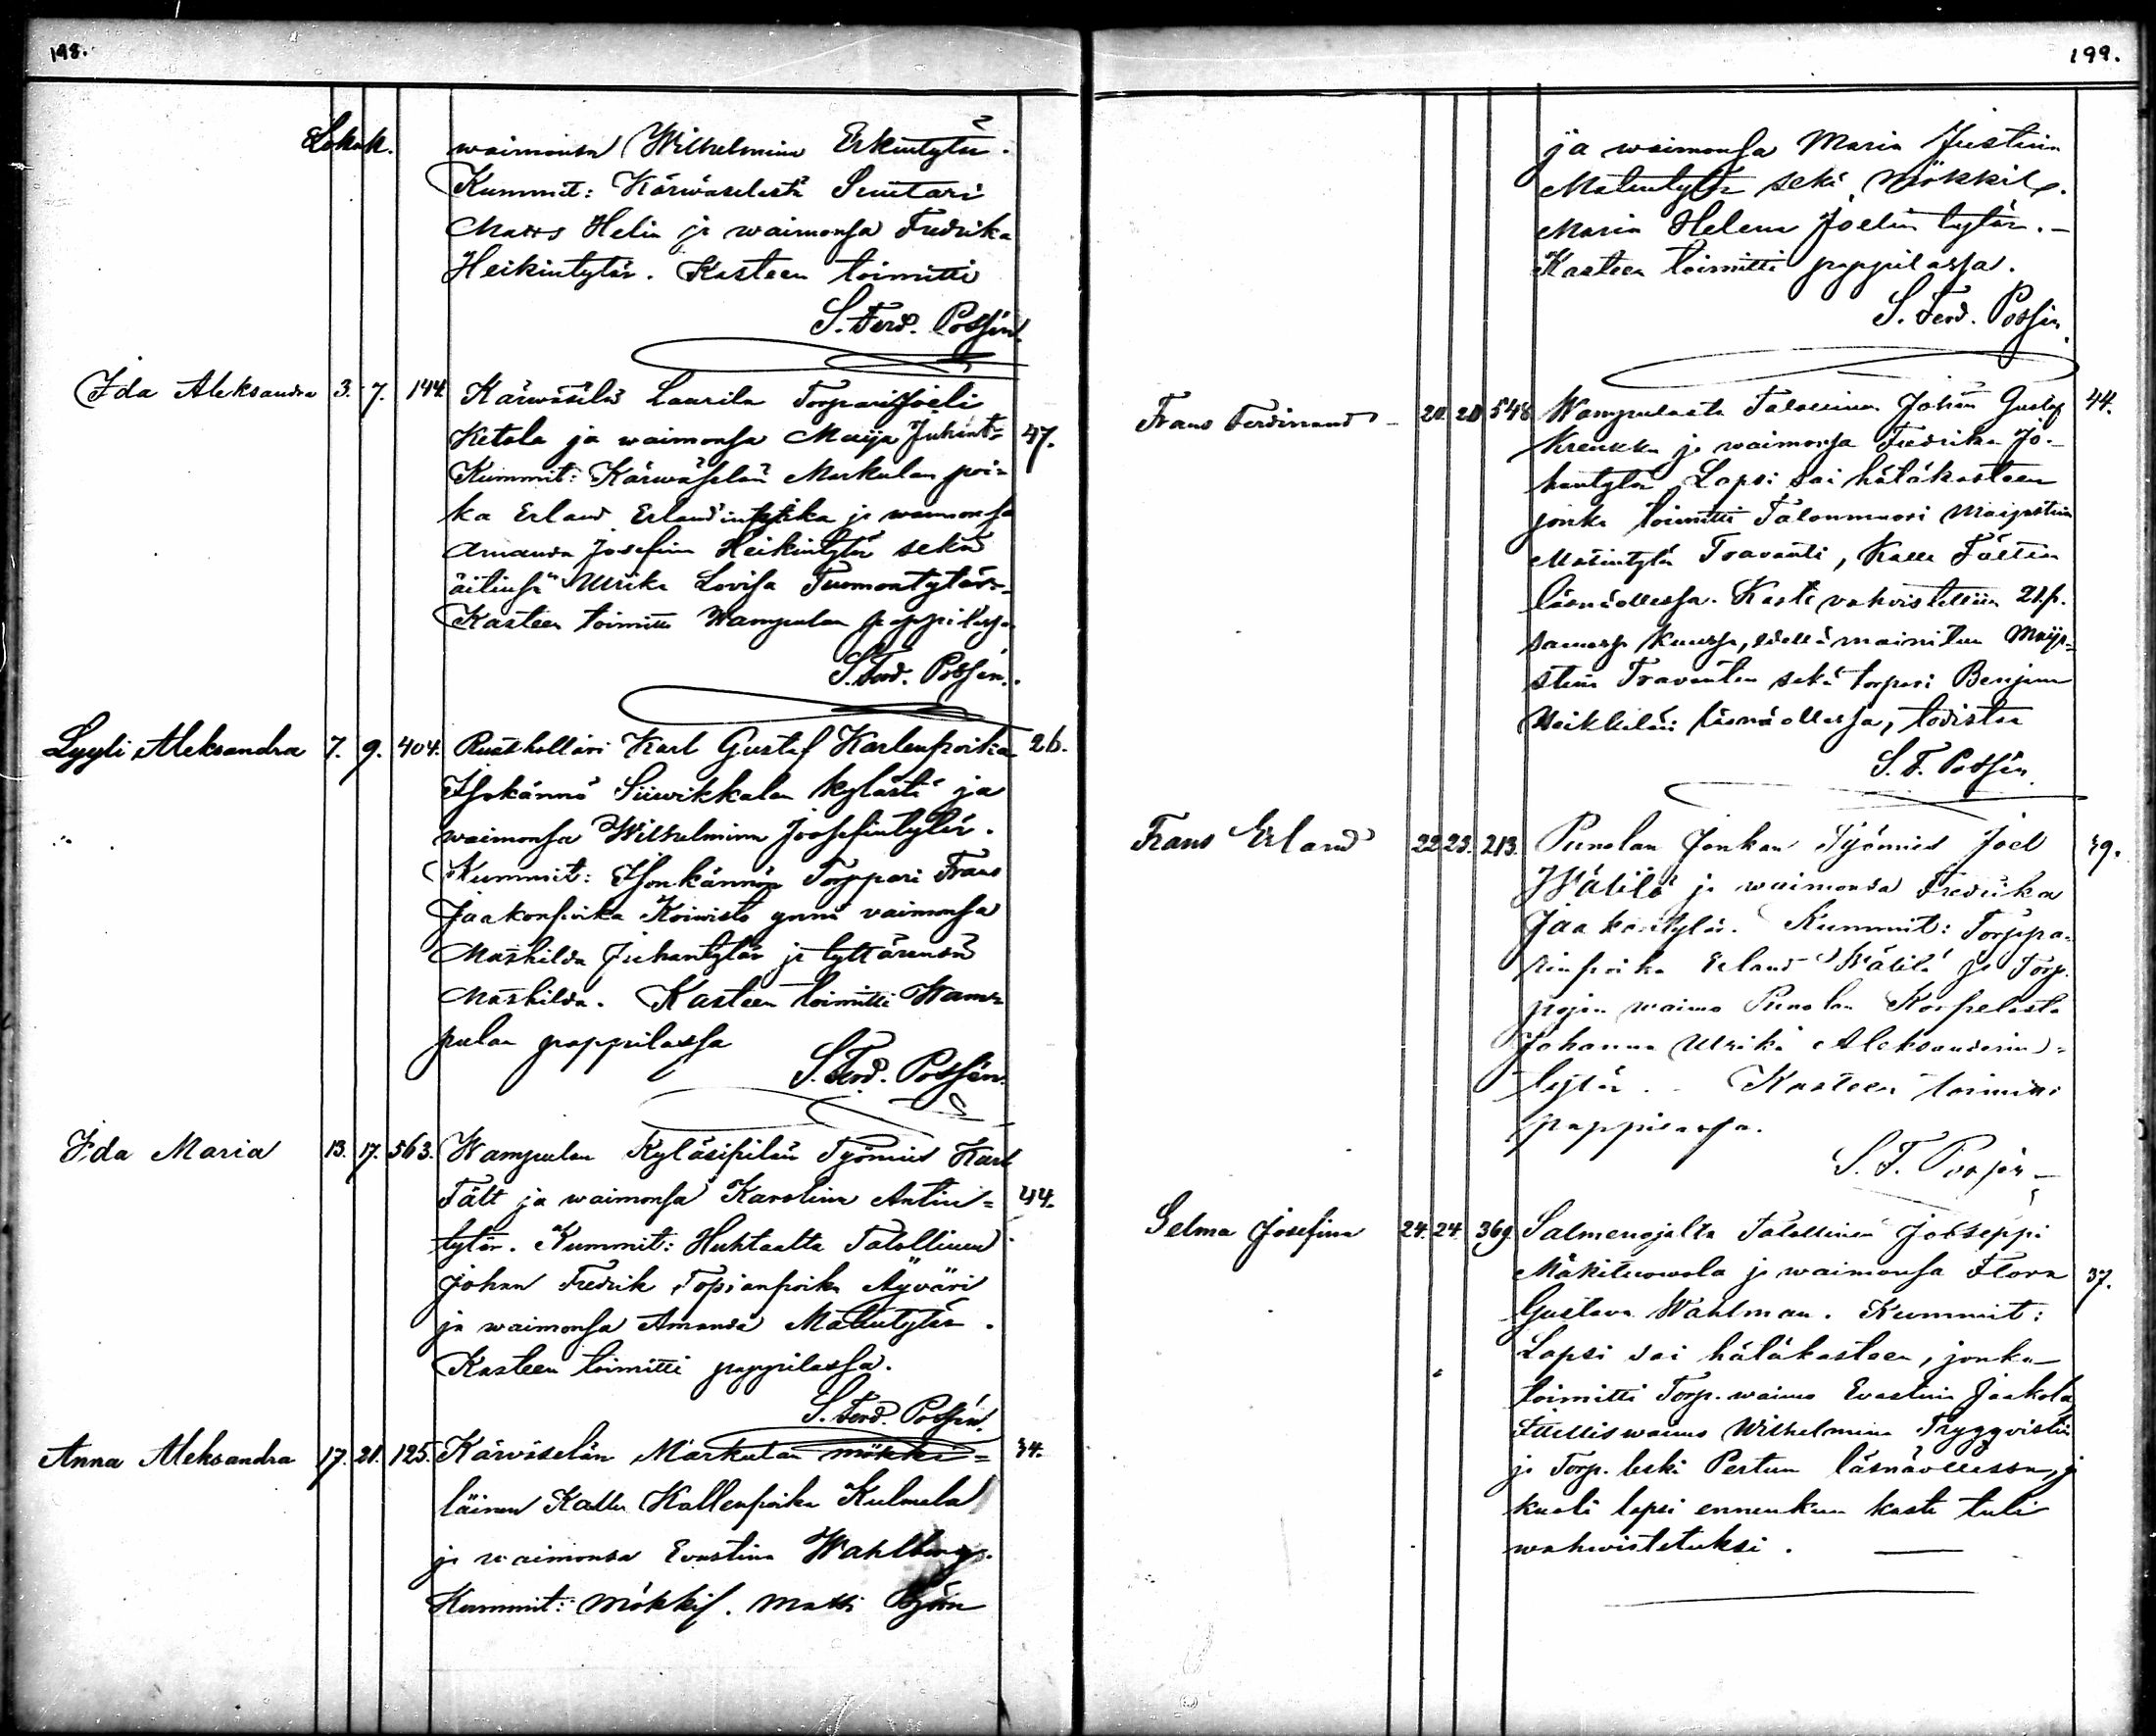 198.
Lokak.
waimonsa Wilhelmina Erkintytär.
Kummit: Kärwäselästä Suutari
Matts Helin ja waimonsa Fredrika
Heikintytär. Kasteen toimitti
S. Ferd. Possén.
Ida Aleksandra 3. 7. 144. Kärwäsilä Laurila Torpari Joeli
Ketola ja waimonsa Maija Juhant= 47.
Kummit: Kärwäselän Markulan poi=
ka Erland Erlandinpoika ja waimonsa
Amanda Josefina Heikintytär sekä
äitinsä Ulrika Lovisa Tuomontytär.
Kasteen toimitti Wampulan pappilassa
S. Ferd. Possén.
Lyyli Aleksandra 7. 9. 404. Rusthollari Karl Gustaf Karlenpoika 26.
Isokännö Siiwikkalan kylästä ja
waimonsa Wilhelmina Joosefintytär.
Kummit: Isonkännön Torppari Frans
Jaakonpoika Koiwisto ynnä vaimonsa
Mathilda Juhantytär ja tyttärensä
Mathilda. Kasteen toimitti Wam=
pulan pappilassa
S. Ferd. Possén.
Ida Maria 13. 17. 563. Wampulan Kyläsipilän Työmies Karl
Fält ja waimonsa Karolina Antin= 44.
tytär. Kummit: Huhtaalta Talollinen
Johan Fredrik Topianpoika Äyväri
ja waimonsa Amanda Matintytär.
Kasteen toimitti pappilassa.
S. Ferd. Possén.
Anna Aleksandra 17. 21. 125. Kärväselän Markulan mökki= 34.
läinen Kalle Kallenpoika Kulmala
ja waimonsa Evastina Wahlberg.
Kummit: Mökkil. Matti
199.
ja waimonsa Maria Justina
Matintytär sekä Mökkil.
Maria Helena Joelin tytär.-
Kasteen toimitti pappilassa.
S. Ferd. Possén.
Frans Ferdinand 20. 21. 548. Wampulasta Talollinen Johan Gustaf 44.
Kreukka ja waimonsa Fredrika Jo-
hantytär. Lapsi sai hätäkasteen
jonka toimitti Talonmuori Maijastiina
Matintytär Travanti, Kalle Fältin
läsnäollessa. Kaste vahvistettiin 21.p.
samassa kuussa, edellämainitun Maija=
stiina Travantin sekä torpari Benjam
läsnäollessa, todistaa
S. F. Possén.
Frans Erland 22. 23. 213. Punolan Jonkan Työmies Joel 39.
Wätilä ja waimonsa Fredrika
Jaakontytär. Kummit: Torppa-
rinpoika Erland Wätilä ja Torp.
pojan waimo Punolan Korpelasta
Johanna Ulrika Aleksanderin=
tytär. Kasteen toimitti
pappilassa.
S. F. Possén
Selma Josefina 24. 24. 369. Salmenojalta Talollinen Jooseppi
Mäkituowola ja waimonsa Flora 37.
Gustava Wahlman. Kummit:
Lapsi sai hätäkasteen, jonka
toimitti Torp. waimo Evastina Jaakola
Itellis waimo Wilhelmina Tryggvistin
ja Torp. leski Pertun läsnäollessa, ja
kuoli lapsi ennenkun kaste tuli
wahwistetuksi.